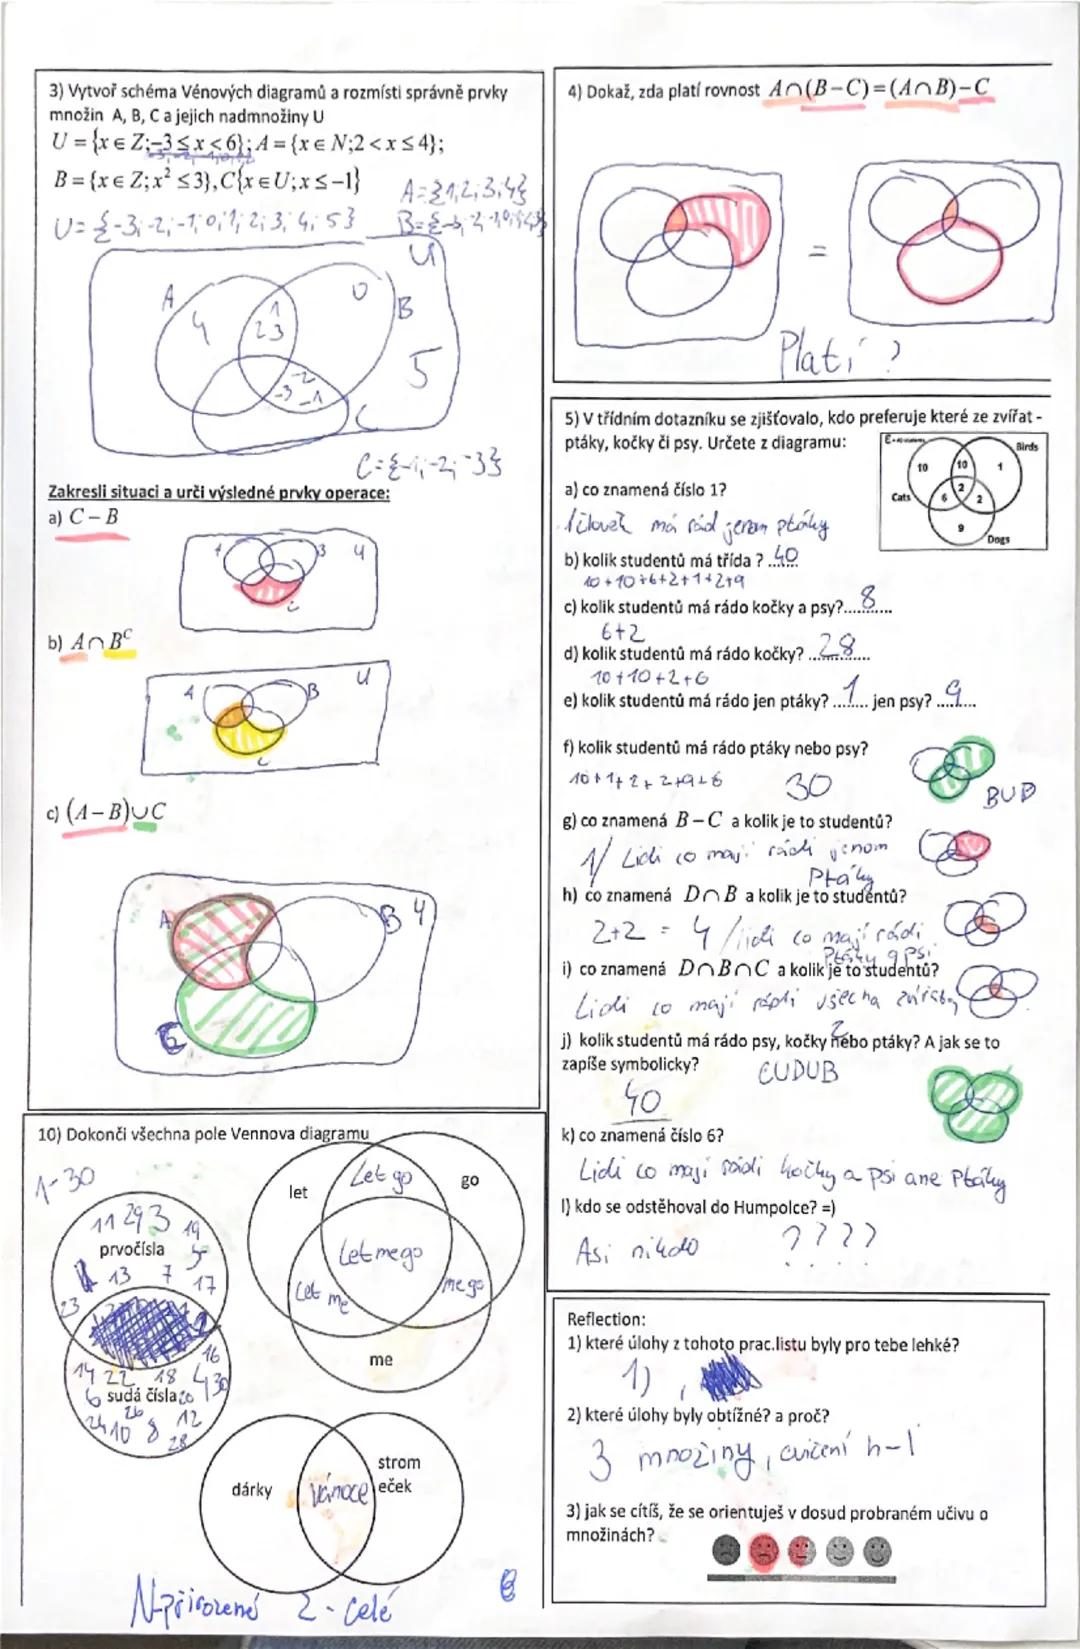 3) Vytvoř schéma Vénových diagramů a rozmísti správně prvky
množin A, B, C a jejich nadmnožiny U
U = {x ∈ Z;−3 ≤ x < 6}; A = {x ∈ N;2 < x ≤ 4};
B = {x ∈ Z; x² ≤ 3}, C{x ∈ U; x ≤ −1}
A = {1;2;3;4}
U = {-3; -2; -1; 0; 1; 2; 3; 4; 5}
U
A
4
1
2 3
0
B
5
-2
-3 -1
C
C = {-1; -2; -3}
Zakresli situaci a urči výsledné prvky operace:
a) C − B
C
b) A ∩ Bᶜ
A
B
U
C
c) (A − B) ∪ C
A
B
10) Dokonči všechna pole Vennova diagramu
1-30
11 29 3 19
prvočísla 5
13 7 17
23
16
14 22 18 4 30
6 sudá čísla 20
26
24 10 8 12
28
let
Let go
go
Let me go
Let me
me go
me
dárky
Vánoce
strom
eček
N-přirozené Z - celé
4) Dokaž, zda platí rovnost A∩(B−C)=(A∩B)−C
=
Platí ?
5) V třídním dotazníku se zjišťovalo, kdo preferuje které ze zvířat -
ptáky, kočky či psy. Určete z diagramu:
Birds
10
10
1
Cats
6
2
2
9
Dogs
a) co znamená číslo 1?
1 človek má rád jenom ptáky
b) kolik studentů má třída ? ..40..
10+10+6+2+1+2+9
c) kolik studentů má rádo kočky a psy?....8....
6+2
d) kolik studentů má rádo kočky? ...28...
10+10+2+6
e) kolik studentů má rádo jen ptáky? ..1.. jen psy? ..9..
f) kolik studentů má rádo ptáky nebo psy?
10+1+2+2+9+6 30
BUD
g) co znamená B − C a kolik je to studentů?
1/ Lidi co mají rádi jenom
Ptáky
h) co znamená D∩B a kolik je to studentů?
2+2 = 4 /lidi co mají rádi
Ptáky a Psi
i) co znamená D∩B∩C a kolik je to studentů?
Lidi co mají rádi všecha zvířata
2
j) kolik studentů má rádo psy, kočky nebo ptáky? A jak se to
zapíše symbolicky?
CUDUB
40
k) co znamená číslo 6?
Lidi co mají rádi kočky a psi ane Ptáky
l) kdo se odstěhoval do Humpolce? =)
Asi nikdo ????
Reflection:
1) které úlohy z tohoto prac.listu byly pro tebe lehké?
1) ,
2) které úlohy byly obtížné? a proč?
3 množiny, cvičení h-l
3) jak se cítíš, že se orientuješ v dosud probraném učivu o
množinách?